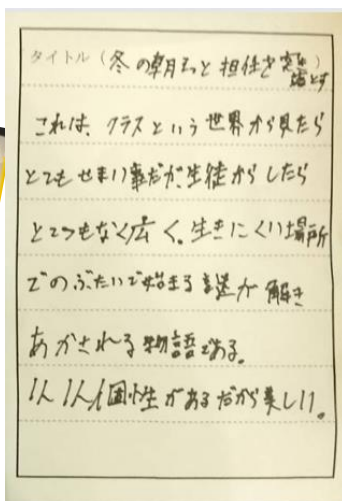 タイトル(冬の朝そっと担任を突き落とす)
これは、クラスという世界から見たら
とてもせまい事だが、生徒からしたら
とてつもなく広く。生きにくい場所
でのぶたいで始まる謎が解き
あかされる物語である。
1人1人個性があるだから美しい。